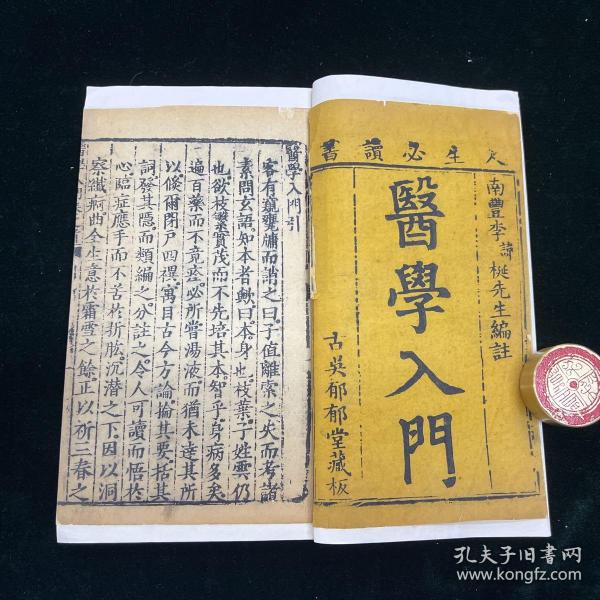 書讀必生文
南豐李諱梴先生編註
醫學入門
古吳郁郁堂藏板
醫學入門引
客有窺甕牖而誚之曰子值離索之失而考諸
素問玄語知本者歟曰本身也枝葉子姓雲仍
也欲枝葉實茂而不先培其本智乎身病多矣
遍百藥而不竟痊必所嘗湯液而猶未達其所
以倐爾閉戶四禩寓目古今方論掄其要括其
詞發其隱而類編之分註之令人可讀而悟於
心臨症應手而不苦於折肱沉潛之下因以洞
察纖痾曲全生意於霜雪之餘正以祈三春之
孔夫子旧书网
www.kongfz.com